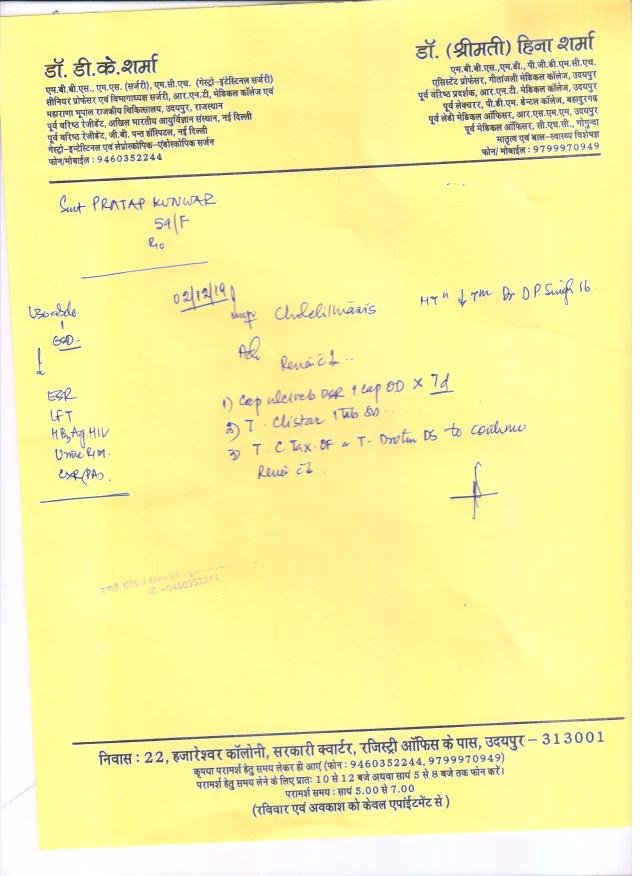 डॉ. डी.के.शर्मा
एम.बी.बी.एस., एम.एस. (सर्जरी), एम.सी.एच. (गेस्ट्रो-इंटेस्टिनल सर्जरी)
सीनियर प्रोफेसर एवं विभागाध्यक्ष सर्जरी, आर.एन.टी. मेडिकल कॉलेज एवं
महाराणा भूपाल राजकीय चिकित्सालय, उदयपुर, राजस्थान
पूर्व वरिष्ठ रेजीडेंट, अखिल भारतीय आयुर्विज्ञान संस्थान, नई दिल्ली
पूर्व वरिष्ठ रेजीडेंट, जी.बी. पन्त हॉस्पिटल, नई दिल्ली
गेस्ट्रो-इन्टेस्टिनल एवं लेप्रोस्कोपिक-एंडोस्कोपिक सर्जन
फोन/मोबाईल : 9460352244
डॉ. (श्रीमती) हिना शर्मा
एम.बी.बी.एस.,एम.डी., पी.जी.डी.एम.सी.एच.
एसिस्टेंट प्रोफेसर, गीतांजली मेडिकल कॉलेज, उदयपुर
पूर्व वरिष्ठ प्रदर्शक, आर.एन.टी. मेडिकल कॉलेज, उदयपुर
पूर्व लेक्चरर, पी.डी.एम. डेन्टल कॉलेज, बहादुरगढ़
पूर्व लेडी मेडिकल ऑफिसर, आर.एस.एम.एम, उदयपुर
पूर्व मेडिकल ऑफिसर, सी.एच.सी., गोगुन्दा
मातृत्व एवं बाल-स्वास्थ्य विशेषज्ञ
फोन/ मोबाईल : 9799970949
Smt PRATAP KUNWAR
59/F
02/12/19
Imp Cholelithiasis
Dr D P Singh
GSD
Adv
ESR
LFT
HBsAg. HIV
Urine R/M.
CXR(PA).
1) Cap DSR 1 cap OD X 7d
2) T. Clistar 1 tab
3) T. C Tax-OF T- Drotin DS to continue
9460352244
निवास : 22, हजारेश्वर कॉलोनी, सरकारी क्वार्टर, रजिस्ट्री ऑफिस के पास, उदयपुर - 313001
कृपया परामर्श हेतु समय लेकर ही आएं (फोन : 9460352244, 9799970949)
परामर्श हेतु समय लेने के लिए प्रातः 10 से 12 बजे अथवा सायं 5 से 8 बजे तक फोन करें।
परामर्श समय : सायं 5.00 से 7.00
(रविवार एवं अवकाश को केवल एपांईटमेंट से )